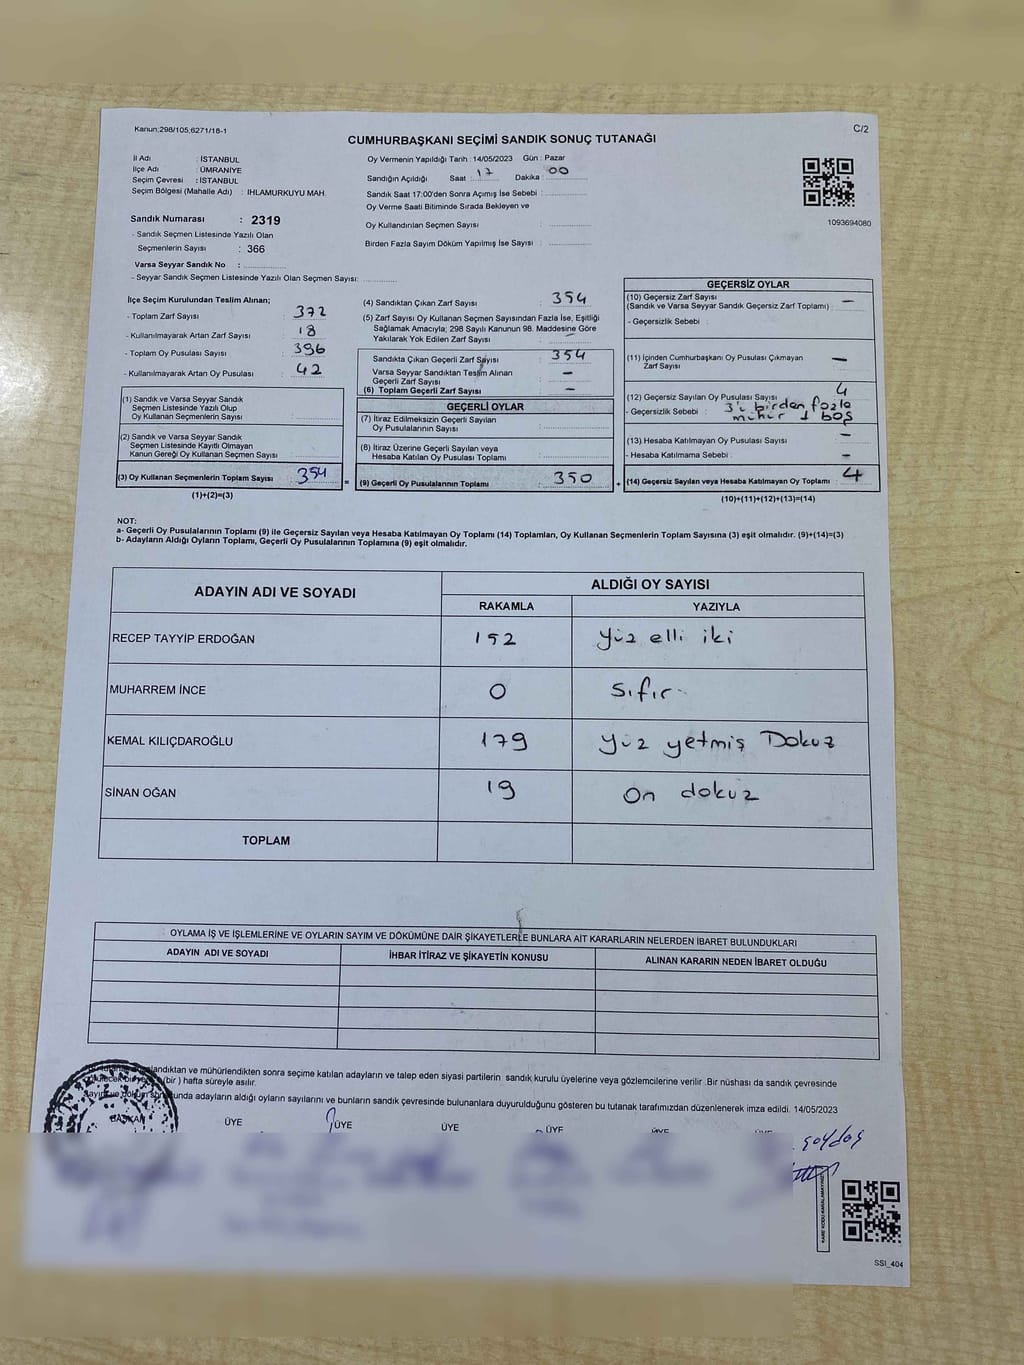 Kanun;298/105;6271/18-1
C/2
CUMHURBAŞKANI SEÇİMİ SANDIK SONUÇ TUTANAĞI
İl Adı : İSTANBUL
İlçe Adı : ÜMRANİYE
Seçim Çevresi : İSTANBUL
Seçim Bölgesi (Mahalle Adı) : IHLAMURKUYU MAH.
Sandık Numarası : 2319
- Sandık Seçmen Listesinde Yazılı Olan
Seçmenlerin Sayısı : 366
Varsa Seyyar Sandık No :
- Seyyar Sandık Seçmen Listesinde Yazılı Olan Seçmen Sayısı:
Oy Vermenin Yapıldığı Tarih : 14/05/2023 Gün : Pazar
Sandığın Açıldığı Saat : 17 Dakika : 00
Sandık Saat 17:00'den Sonra Açımış İse Sebebi :
Oy Verme Saati Bitiminde Sırada Bekleyen ve
Oy Kullandırılan Seçmen Sayısı :
Birden Fazla Sayım Döküm Yapılmış İse Sayısı :
1093694080
İlçe Seçim Kurulundan Teslim Alınan;
- Toplam Zarf Sayısı : 372
- Kullanılmayarak Artan Zarf Sayısı : 18
- Toplam Oy Pusulası Sayısı : 396
- Kullanılmayarak Artan Oy Pusulası : 42
(1) Sandık ve Varsa Seyyar Sandık
Seçmen Listesinde Yazılı Olup
Oy Kullanan Seçmenlerin Sayısı :
(2) Sandık ve Varsa Seyyar Sandık
Seçmen Listesinde Kayıtlı Olmayan
Kanun Gereği Oy Kullanan Seçmen Sayısı :
(3) Oy Kullanan Seçmenlerin Toplam Sayısı : 354
(1)+(2)=(3)
(4) Sandıktan Çıkan Zarf Sayısı : 354
(5) Zarf Sayısı Oy Kullanan Seçmen Sayısından Fazla İse, Eşitliği
Sağlamak Amacıyla; 298 Sayılı Kanunun 98. Maddesine Göre
Yakılarak Yok Edilen Zarf Sayısı : -
Sandıkta Çıkan Geçerli Zarf Sayısı : 354
Varsa Seyyar Sandıktan Teslim Alınan
Geçerli Zarf Sayısı : -
(6) Toplam Geçerli Zarf Sayısı : -
GEÇERLİ OYLAR
(7) İtiraz Edilmeksizin Geçerli Sayılan
Oy Pusulalarının Sayısı :
(8) İtiraz Üzerine Geçerli Sayılan veya
Hesaba Katılan Oy Pusulası Toplamı :
(9) Geçerli Oy Pusulalarının Toplamı : 350
GEÇERSİZ OYLAR
(10) Geçersiz Zarf Sayısı
(Sandık ve Varsa Seyyar Sandık Geçersiz Zarf Toplamı) : -
- Geçersizlik Sebebi :
(11) İçinden Cumhurbaşkanı Oy Pusulası Çıkmayan
Zarf Sayısı : -
(12) Geçersiz Sayılan Oy Pusulası Sayısı : 4
- Geçersizlik Sebebi : 3'ü birden fazla
mühür 1 boş
(13) Hesaba Katılmayan Oy Pusulası Sayısı : -
- Hesaba Katılmama Sebebi : -
(14) Geçersiz Sayılan veya Hesaba Katılmayan Oy Toplamı : 4
(10)+(11)+(12)+(13)=(14)
NOT:
a- Geçerli Oy Pusulalarının Toplamı (9) ile Geçersiz Sayılan veya Hesaba Katılmayan Oy Toplamı (14) Toplamları, Oy Kullanan Seçmenlerin Toplam Sayısına (3) eşit olmalıdır. (9)+(14)=(3)
b- Adayların Aldığı Oyların Toplamı, Geçerli Oy Pusulalarının Toplamına (9) eşit olmalıdır.
ADAYIN ADI VE SOYADI
ALDIĞI OY SAYISI
RAKAMLA YAZIYLA
RECEP TAYYİP ERDOĞAN 152 Yüz elli iki
MUHARREM İNCE 0 sıfır
KEMAL KILIÇDAROĞLU 179 yüz yetmiş Dokuz
SİNAN OĞAN 19 on dokuz
TOPLAM
OYLAMA İŞ VE İŞLEMLERİNE VE OYLARIN SAYIM VE DÖKÜMÜNE DAİR ŞİKAYETLERLE BUNLARA AİT KARARLARIN NELERDEN İBARET BULUNDUKLARI
ADAYIN ADI VE SOYADI İHBAR İTİRAZ VE ŞİKAYETİN KONUSU ALINAN KARARIN NEDEN İBARET OLDUĞU
landıktan ve mühürlendikten sonra seçime katılan adayların ve talep eden siyasi partilerin sandık kurulu üyelerine veya gözlemcilerine verilir .Bir nüshası da sandık çevresinde
(bir ) hafta süreyle asılır.
unda adayların aldığı oyların sayılarını ve bunların sandık çevresinde bulunanlara duyurulduğunu gösteren bu tutanak tarafımızdan düzenlenerek imza edildi. 14/05/2023
BAŞKAN ÜYE ÜYE ÜYE ÜYE
SSI_404